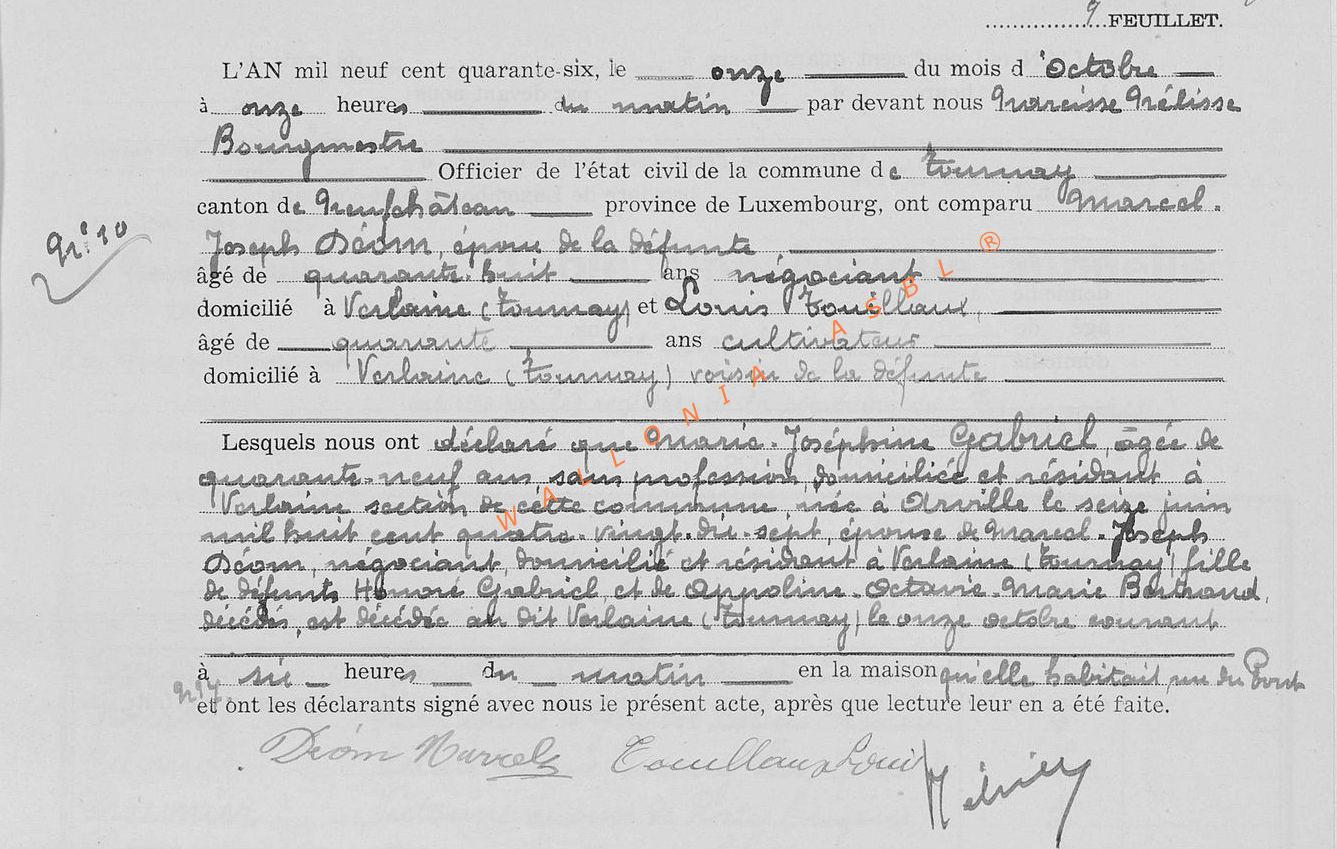 9 FEUILLET.
L'AN mil neuf cent quarante-six, le onze du mois d'Octobre
à onze heures du matin par devant nous Narcisse Mélisse
Bourgmestre
Officier de l'état civil de la commune de Tournay
canton de Neufchâteau province de Luxembourg, ont comparu Marcel.
Joseph Déom, époux de la défunte
N° 10
âgé de quarante-huit ans négociant
domicilié à Verlaine (Tournay) et Louis Touillaux,
âgé de quarante ans cultivateur
domicilié à Verlaine (Tournay) voisin de la défunte
Lesquels nous ont déclaré que Marie-Joséphine Gabriel, âgée de
quarante-neuf ans, sans profession, domiciliée et résidant à
Verlaine section de cette commune, née à Arville le seize juin
mil huit cent quatre-vingt-dix-sept, épouse de Marcel-Joseph
Déom, négociant, domicilié et résidant à Verlaine (Tournay) fille
de défunts Honoré Gabriel, et de Appoline-Octavie-Marie Bertrand,
décédés, est décédée au dit Verlaine (Tournay) le onze octobre courant
à six heures du matin en la maison qu'elle habitait, rue du Pont
n° 17.
et ont les déclarants signé avec nous le présent acte, après que lecture leur en a été faite.
Déom Marcel Touillaux Louis
WALLONIA ASBL ®